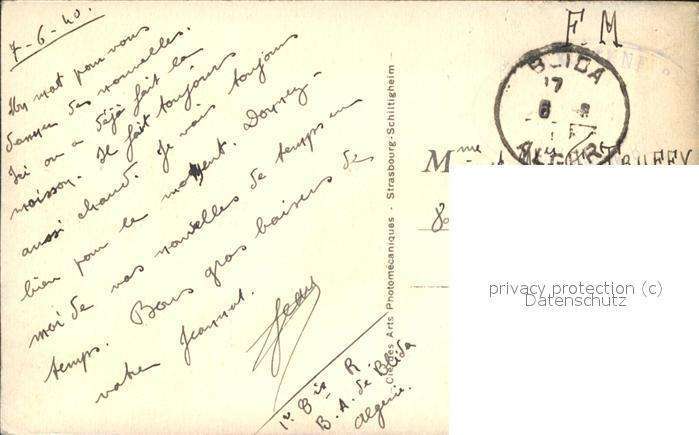 7-6-40.
Un mot pour vous
donner des nouvelles.
Ici on a déjà fait la
moisson. Il fait toujours
aussi chaud. Je vais toujours
bien pour le moment. Donnez-
moi de vos nouvelles de temps en
temps. Bons gros baisers de
votre Jeannot.
Jean
1er Bis R.
B. A. de Blida
Algérie.
Cie des Arts Photomécaniques - Strasbourg-Schiltigheim
F.M
BLIDA
17
6
ALGER
Mme
80
privacy protection (c)
Datenschutz